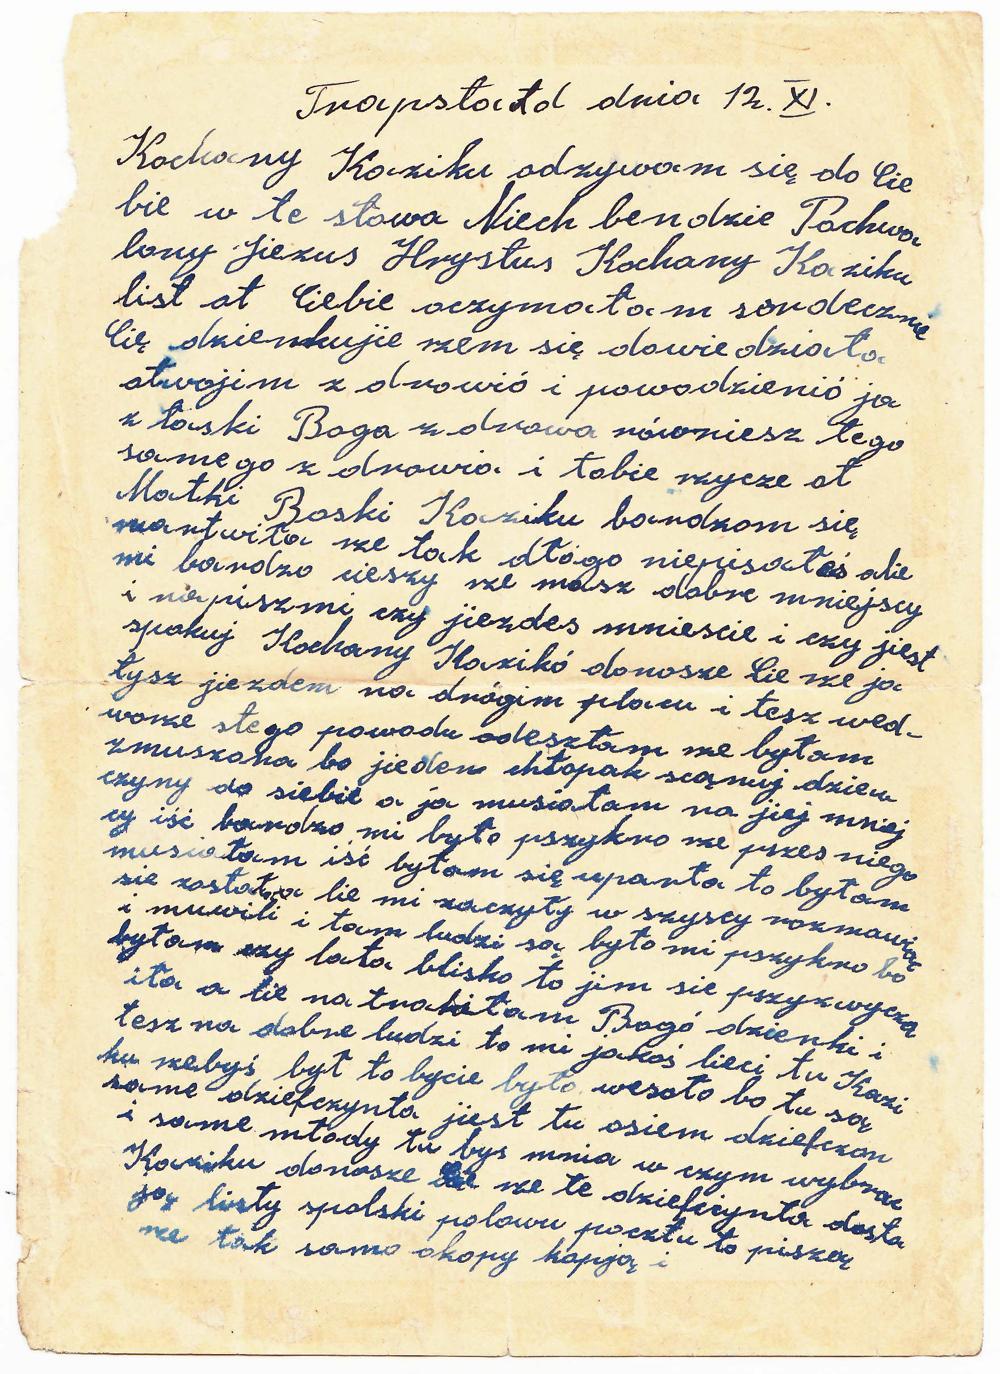 Trapstatd dnia 12. XI.
Kochany Kaziku odzywam się do Cie
bie w te słowa Niech bendzie Pochwa
lony Jiezus Hrystus Kochany Kaziku
list at Ciebie oczymałam serdecznie
Cię dzienkujie rzem się dowiedziała
otwojim zdrowió i powodzienió ja
złaski Boga zdrowa równiesz tego
samego zdrowia i tobie rzycze ot
Matki Boski Kaziku bardzom się
martwiła rze tak dłógo niepisałeś ale
mi bardzo cieszy rze masz dobre mniejscy
i niepiszmi czy jiezdes mniescie i czy jiest
spokuj Kochany Kazikó donosze Cie rze ja
tysz jiezdem na drógim placu i tesz wed-
worze stego powodu odeszłam rze byłam
zmuszona bo jieden chłopak scąnuj dziew
czyny do siebie a ja musiałam na jiej mniej
cy iść bardzo mi było pszykro rze przes niego
musiałam iść byłam się uparta to byłam
sie została lie mi zaczyły w szyscy rozmawiać
i muwili i tam ludzi są było mi pszykro bo
byłam czy lata blisko to jim sie pszyzwycza
iła a lie natrafiłam Bogó dzienki i
tesz na dobre ludzi to mi jakoś lieci tu Kazi
ku rzebyś był to bycie było wesoło bo tu są
same dziefczynta jiest tu osiem dziefczon
i same młody tu bys mnia w czym wybrac
Kaziku donosze Cie rze te dziefczynta dosta
ją listy spolski polowu pocztu to piszeą
rze tak samo okopy kopją i